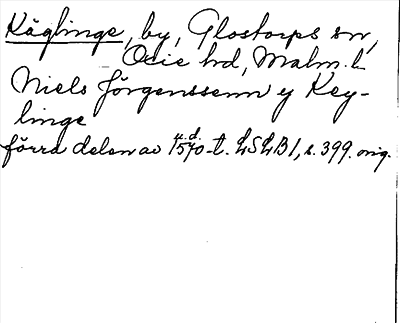 Käglinge, by, Glostorps sn,
Oxie hd, Malm. l.
Niels Jörgenssenn y Key-
linge
förra delen av 1570-t. LSLB1, s. 399. orig.
u. d.